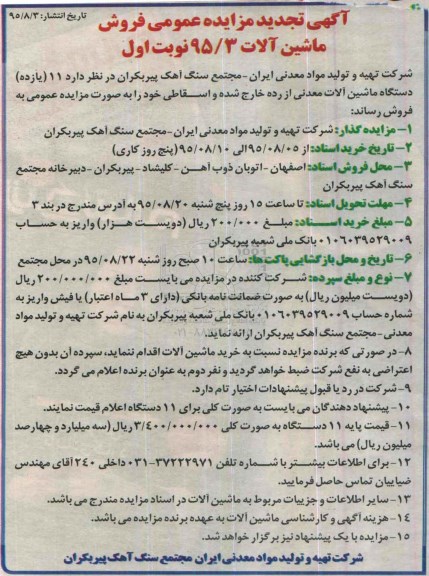 تاریخ انتشار: ۹۵/۸/۳
آگهی تجدید مزایده عمومی فروش
ماشین آلات ۹۵/۳ نوبت اول
شرکت تهیه و تولید مواد معدنی ایران -مجتمع سنگ آهک پیربکران در نظر دارد ۱۱ (یازده)
دستگاه ماشین آلات معدنی از رده خارج شده و اسقاطی خود را به صورت مزایده عمومی به
فروش رساند:
۱- مزایده گذار: شرکت تهیه و تولید مواد معدنی ایران -مجتمع سنگ آهک پیربکران
۲- تاریخ خرید اسناد: از ۹۵/۰۸/۰۵ الی ۹۵/۰۸/۱۰ (پنج روز کاری)
۳- محل فروش اسناد: اصفهان -اتوبان ذوب آهن -کلیشاد -پیربکران -دبیرخانه مجتمع
سنگ آهک پیربکران
۴- مهلت تحویل اسناد: تا ساعت ۱۵ روز پنج شنبه ۹۵/۰۸/۲۰ به آدرس مندرج در بند ۳
۵- مبلغ خرید اسناد: مبلغ ۲۰۰/۰۰۰ ریال (دویست هزار) واریز به حساب
۰۱۰۶۰۳۹۵۲۹۰۰۹ بانک ملی شعبه پیربکران
۶- تاریخ و محل بازگشایی پاکت ها: ساعت ۱۰ صبح روز شنبه ۹۵/۰۸/۲۲ در محل مجتمع
۷- نوع و مبلغ سپرده: شرکت کننده در مزایده می بایست مبلغ ۲۰۰/۰۰۰/۰۰۰ ریال
(دویست میلیون ریال) به صورت ضمانت نامه بانکی (دارای ۳ ماه اعتبار) یا فیش واریز به
شماره حساب ۰۱۰۶۰۳۹۵۲۹۰۰۹ بانک ملی شعبه پیربکران به نام شرکت تهیه و تولید مواد
معدنی-مجتمع سنگ آهک پیربکران ارائه نماید.
۸- در صورتی که برنده مزایده نسبت به خرید ماشین آلات اقدام ننماید، سپرده آن بدون هیچ
اعتراضی به نفع شرکت ضبط خواهد گردید و نفر دوم به عنوان برنده اعلام می گردد.
۹- شرکت در رد یا قبول پیشنهادات اختیار تام دارد.
۱۰- پیشنهاد دهندگان می بایست به صورت کلی برای ۱۱ دستگاه اعلام قیمت نمایند.
۱۱- قیمت پایه ۱۱ دستگاه به صورت کلی ۳/۴۰۰/۰۰۰/۰۰۰ ریال (سه میلیارد و چهارصد
میلیون ریال) می باشد.
۱۲- برای اطلاعات بیشتر با شماره تلفن ۳۷۲۲۲۹۷۱-۰۳۱ داخلی ۲۴۰ آقای مهندس
ضیاییان تماس حاصل فرمایید.
۱۳- سایر اطلاعات و جزییات مربوط به ماشین آلات در اسناد مزایده مندرج می باشد.
۱۴- هزینه آگهی و کارشناسی ماشین آلات به عهده برنده مزایده می باشد.
۱۵- مزایده با یک پیشنهاد نیز برگزار خواهد شد.
شرکت تهیه و تولید مواد معدنی ایران مجتمع سنگ آهک پیربکران